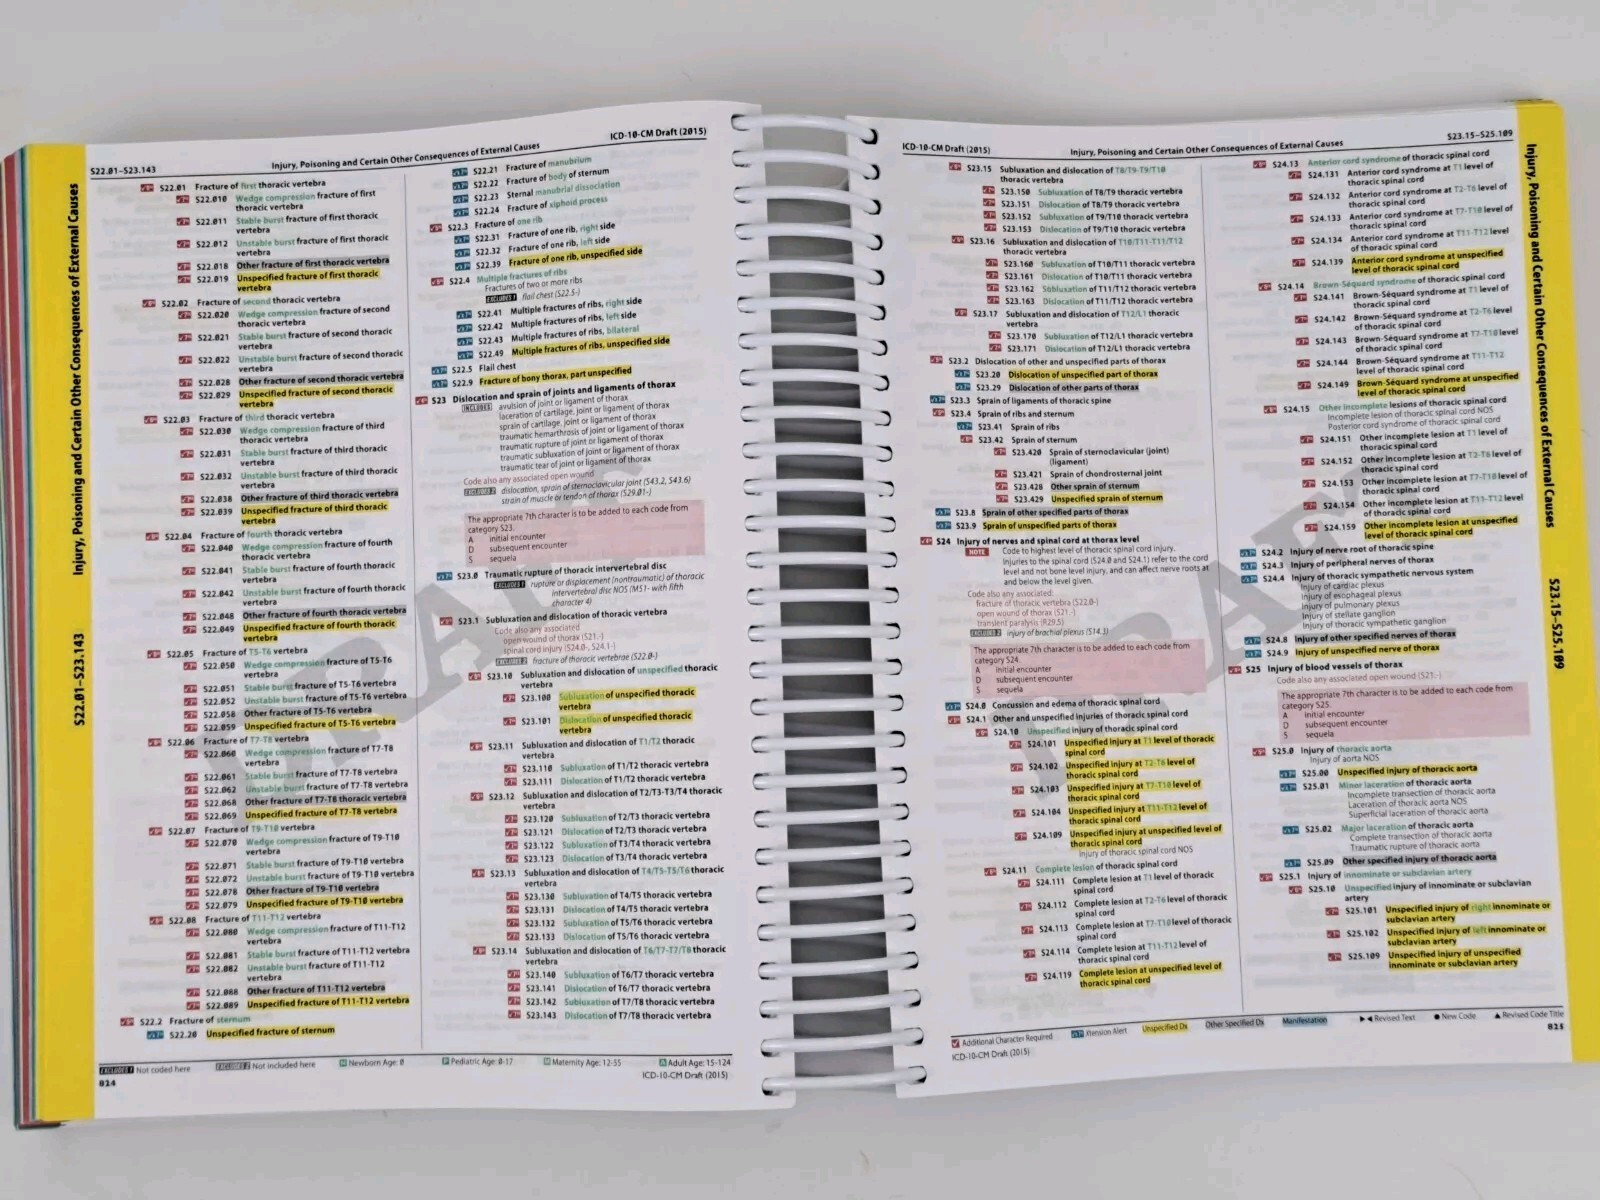 S22.01–S23.143
Injury, Poisoning and Certain Other Consequences of External Causes
ICD-10-CM Draft (2015)
Injury, Poisoning and Certain Other Consequences of External Causes
S22.01–S23.143
S22.01 Fracture of first thoracic vertebra
S22.010 Wedge compression fracture of first
thoracic vertebra
S22.011 Stable burst fracture of first thoracic
vertebra
S22.012 Unstable burst fracture of first thoracic
vertebra
S22.018 Other fracture of first thoracic vertebra
S22.019 Unspecified fracture of first thoracic
vertebra
S22.02 Fracture of second thoracic vertebra
S22.020 Wedge compression fracture of second
thoracic vertebra
S22.021 Stable burst fracture of second thoracic
vertebra
S22.022 Unstable burst fracture of second thoracic
vertebra
S22.028 Other fracture of second thoracic vertebra
S22.029 Unspecified fracture of second thoracic
vertebra
S22.03 Fracture of third thoracic vertebra
S22.030 Wedge compression fracture of third
thoracic vertebra
S22.031 Stable burst fracture of third thoracic
vertebra
S22.032 Unstable burst fracture of third thoracic
vertebra
S22.038 Other fracture of third thoracic vertebra
S22.039 Unspecified fracture of third thoracic
vertebra
S22.04 Fracture of fourth thoracic vertebra
S22.040 Wedge compression fracture of fourth
thoracic vertebra
S22.041 Stable burst fracture of fourth thoracic
vertebra
S22.042 Unstable burst fracture of fourth thoracic
vertebra
S22.048 Other fracture of fourth thoracic vertebra
S22.049 Unspecified fracture of fourth thoracic
vertebra
S22.05 Fracture of T5-T6 vertebra
S22.050 Wedge compression fracture of T5-T6
vertebra
S22.051 Stable burst fracture of T5-T6 vertebra
S22.052 Unstable burst fracture of T5-T6 vertebra
S22.058 Other fracture of T5-T6 vertebra
S22.059 Unspecified fracture of T5-T6 vertebra
S22.06 Fracture of T7-T8 vertebra
S22.060 Wedge compression fracture of T7-T8
vertebra
S22.061 Stable burst fracture of T7-T8 vertebra
S22.062 Unstable burst fracture of T7-T8 vertebra
S22.068 Other fracture of T7-T8 thoracic vertebra
S22.069 Unspecified fracture of T7-T8 vertebra
S22.07 Fracture of T9-T10 vertebra
S22.070 Wedge compression fracture of T9-T10
vertebra
S22.071 Stable burst fracture of T9-T10 vertebra
S22.072 Unstable burst fracture of T9-T10 vertebra
S22.078 Other fracture of T9-T10 vertebra
S22.079 Unspecified fracture of T9-T10 vertebra
S22.08 Fracture of T11-T12 vertebra
S22.080 Wedge compression fracture of T11-T12
vertebra
S22.081 Stable burst fracture of T11-T12 vertebra
S22.082 Unstable burst fracture of T11-T12
vertebra
S22.088 Other fracture of T11-T12 vertebra
S22.089 Unspecified fracture of T11-T12 vertebra
S22.2 Fracture of sternum
S22.20 Unspecified fracture of sternum
S22.21 Fracture of manubrium
S22.22 Fracture of body of sternum
S22.23 Sternal manubrial dissociation
S22.24 Fracture of xiphoid process
S22.3 Fracture of one rib
S22.31 Fracture of one rib, right side
S22.32 Fracture of one rib, left side
S22.39 Fracture of one rib, unspecified side
S22.4 Multiple fractures of ribs
Fractures of two or more ribs
EXCLUDES 1 flail chest (S22.5-)
S22.41 Multiple fractures of ribs, right side
S22.42 Multiple fractures of ribs, left side
S22.43 Multiple fractures of ribs, bilateral
S22.49 Multiple fractures of ribs, unspecified side
S22.5 Flail chest
S22.9 Fracture of bony thorax, part unspecified
S23 Dislocation and sprain of joints and ligaments of thorax
INCLUDES avulsion of joint or ligament of thorax
laceration of cartilage, joint or ligament of thorax
sprain of cartilage, joint or ligament of thorax
traumatic hemarthrosis of joint or ligament of thorax
traumatic rupture of joint or ligament of thorax
traumatic subluxation of joint or ligament of thorax
traumatic tear of joint or ligament of thorax
Code also any associated open wound
EXCLUDES 2 dislocation, sprain of sternoclavicular joint (S43.2, S43.6)
strain of muscle or tendon of thorax (S29.01-)
The appropriate 7th character is to be added to each code from
category S23.
A initial encounter
D subsequent encounter
S sequela
S23.0 Traumatic rupture of thoracic intervertebral disc
EXCLUDES 1 rupture or displacement (nontraumatic) of thoracic
intervertebral disc NOS (M51- with fifth
character 4)
S23.1 Subluxation and dislocation of thoracic vertebra
Code also any associated
open wound of thorax (S21.-)
spinal cord injury (S24.0-, S24.1-)
EXCLUDES 2 fracture of thoracic vertebrae (S22.0-)
S23.10 Subluxation and dislocation of unspecified thoracic
vertebra
S23.100 Subluxation of unspecified thoracic
vertebra
S23.101 Dislocation of unspecified thoracic
vertebra
S23.11 Subluxation and dislocation of T1/T2 thoracic
vertebra
S23.110 Subluxation of T1/T2 thoracic vertebra
S23.111 Dislocation of T1/T2 thoracic vertebra
S23.12 Subluxation and dislocation of T2/T3-T3/T4 thoracic
vertebra
S23.120 Subluxation of T2/T3 thoracic vertebra
S23.121 Dislocation of T2/T3 thoracic vertebra
S23.122 Subluxation of T3/T4 thoracic vertebra
S23.123 Dislocation of T3/T4 thoracic vertebra
S23.13 Subluxation and dislocation of T4/T5-T5/T6 thoracic
vertebra
S23.130 Subluxation of T4/T5 thoracic vertebra
S23.131 Dislocation of T4/T5 thoracic vertebra
S23.132 Subluxation of T5/T6 thoracic vertebra
S23.133 Dislocation of T5/T6 thoracic vertebra
S23.14 Subluxation and dislocation of T6/T7-T7/T8 thoracic
vertebra
S23.140 Subluxation of T6/T7 thoracic vertebra
S23.141 Dislocation of T6/T7 thoracic vertebra
S23.142 Subluxation of T7/T8 thoracic vertebra
S23.143 Dislocation of T7/T8 thoracic vertebra
EXCLUDES 1 Not coded here EXCLUDES 2 Not included here N Newborn Age: 0 P Pediatric Age: 0-17 M Maternity Age: 12-55 A Adult Age: 15-124
824
ICD-10-CM Draft (2015)
ICD-10-CM Draft (2015)
Injury, Poisoning and Certain Other Consequences of External Causes
S23.15–S25.109
S23.15 Subluxation and dislocation of T8/T9-T9/T10
thoracic vertebra
S23.150 Subluxation of T8/T9 thoracic vertebra
S23.151 Dislocation of T8/T9 thoracic vertebra
S23.152 Subluxation of T9/T10 thoracic vertebra
S23.153 Dislocation of T9/T10 thoracic vertebra
S23.16 Subluxation and dislocation of T10/T11-T11/T12
thoracic vertebra
S23.160 Subluxation of T10/T11 thoracic vertebra
S23.161 Dislocation of T10/T11 thoracic vertebra
S23.162 Subluxation of T11/T12 thoracic vertebra
S23.163 Dislocation of T11/T12 thoracic vertebra
S23.17 Subluxation and dislocation of T12/L1 thoracic
vertebra
S23.170 Subluxation of T12/L1 thoracic vertebra
S23.171 Dislocation of T12/L1 thoracic vertebra
S23.2 Dislocation of other and unspecified parts of thorax
S23.20 Dislocation of unspecified part of thorax
S23.29 Dislocation of other parts of thorax
S23.3 Sprain of ligaments of thoracic spine
S23.4 Sprain of ribs and sternum
S23.41 Sprain of ribs
S23.42 Sprain of sternum
S23.420 Sprain of sternoclavicular (joint)
(ligament)
S23.421 Sprain of chondrosternal joint
S23.428 Other sprain of sternum
S23.429 Unspecified sprain of sternum
S23.8 Sprain of other specified parts of thorax
S23.9 Sprain of unspecified parts of thorax
S24 Injury of nerves and spinal cord at thorax level
NOTE Code to highest level of thoracic spinal cord injury.
Injuries to the spinal cord (S24.0 and S24.1) refer to the cord
level and not bone level injury, and can affect nerve roots at
and below the level given.
Code also any associated:
fracture of thoracic vertebra (S22.0-)
open wound of thorax (S21.-)
transient paralysis (R29.5)
EXCLUDES 2 injury of brachial plexus (S14.3)
The appropriate 7th character is to be added to each code from
category S24.
A initial encounter
D subsequent encounter
S sequela
S24.0 Concussion and edema of thoracic spinal cord
S24.1 Other and unspecified injuries of thoracic spinal cord
S24.10 Unspecified injury of thoracic spinal cord
S24.101 Unspecified injury at T1 level of thoracic
spinal cord
S24.102 Unspecified injury at T2-T6 level of
thoracic spinal cord
S24.103 Unspecified injury at T7-T10 level of
thoracic spinal cord
S24.104 Unspecified injury at T11-T12 level of
thoracic spinal cord
S24.109 Unspecified injury at unspecified level of
thoracic spinal cord
Injury of thoracic spinal cord NOS
S24.11 Complete lesion of thoracic spinal cord
S24.111 Complete lesion at T1 level of thoracic
spinal cord
S24.112 Complete lesion at T2-T6 level of thoracic
spinal cord
S24.113 Complete lesion at T7-T10 level of thoracic
spinal cord
S24.114 Complete lesion at T11-T12 level of
thoracic spinal cord
S24.119 Complete lesion at unspecified level of
thoracic spinal cord
S24.13 Anterior cord syndrome of thoracic spinal cord
S24.131 Anterior cord syndrome at T1 level of
thoracic spinal cord
S24.132 Anterior cord syndrome at T2-T6 level of
thoracic spinal cord
S24.133 Anterior cord syndrome at T7-T10 level of
thoracic spinal cord
S24.134 Anterior cord syndrome at T11-T12 level
of thoracic spinal cord
S24.139 Anterior cord syndrome at unspecified
level of thoracic spinal cord
S24.14 Brown-Séquard syndrome of thoracic spinal cord
S24.141 Brown-Séquard syndrome at T1 level of
thoracic spinal cord
S24.142 Brown-Séquard syndrome at T2-T6 level
of thoracic spinal cord
S24.143 Brown-Séquard syndrome at T7-T10 level
of thoracic spinal cord
S24.144 Brown-Séquard syndrome at T11-T12
level of thoracic spinal cord
S24.149 Brown-Séquard syndrome at unspecified
level of thoracic spinal cord
S24.15 Other incomplete lesions of thoracic spinal cord
Incomplete lesion of thoracic spinal cord NOS
Posterior cord syndrome of thoracic spinal cord
S24.151 Other incomplete lesion at T1 level of
thoracic spinal cord
S24.152 Other incomplete lesion at T2-T6 level of
thoracic spinal cord
S24.153 Other incomplete lesion at T7-T10 level
of thoracic spinal cord
S24.154 Other incomplete lesion at T11-T12 level
of thoracic spinal cord
S24.159 Other incomplete lesion at unspecified
level of thoracic spinal cord
S24.2 Injury of nerve root of thoracic spine
S24.3 Injury of peripheral nerves of thorax
S24.4 Injury of thoracic sympathetic nervous system
Injury of cardiac plexus
Injury of esophageal plexus
Injury of pulmonary plexus
Injury of stellate ganglion
Injury of thoracic sympathetic ganglion
S24.8 Injury of other specified nerves of thorax
S24.9 Injury of unspecified nerve of thorax
S25 Injury of blood vessels of thorax
Code also any associated open wound (S21.-)
The appropriate 7th character is to be added to each code from
category S25.
A initial encounter
D subsequent encounter
S sequela
S25.0 Injury of thoracic aorta
Injury of aorta NOS
S25.00 Unspecified injury of thoracic aorta
S25.01 Minor laceration of thoracic aorta
Incomplete transection of thoracic aorta
Laceration of thoracic aorta NOS
Superficial laceration of thoracic aorta
S25.02 Major laceration of thoracic aorta
Complete transection of thoracic aorta
Traumatic rupture of thoracic aorta
S25.09 Other specified injury of thoracic aorta
S25.1 Injury of innominate or subclavian artery
S25.10 Unspecified injury of innominate or subclavian
artery
S25.101 Unspecified injury of right innominate or
subclavian artery
S25.102 Unspecified injury of left innominate or
subclavian artery
S25.109 Unspecified injury of unspecified
innominate or subclavian artery
Additional Character Required x7th Xtension Alert Unspecified Dx Other Specified Dx Manifestation ►◄ Revised Text ● New Code ▲ Revised Code Title
ICD-10-CM Draft (2015)
825
Injury, Poisoning and Certain Other Consequences of External Causes
S23.15–S25.109
DRAFT
DRAF